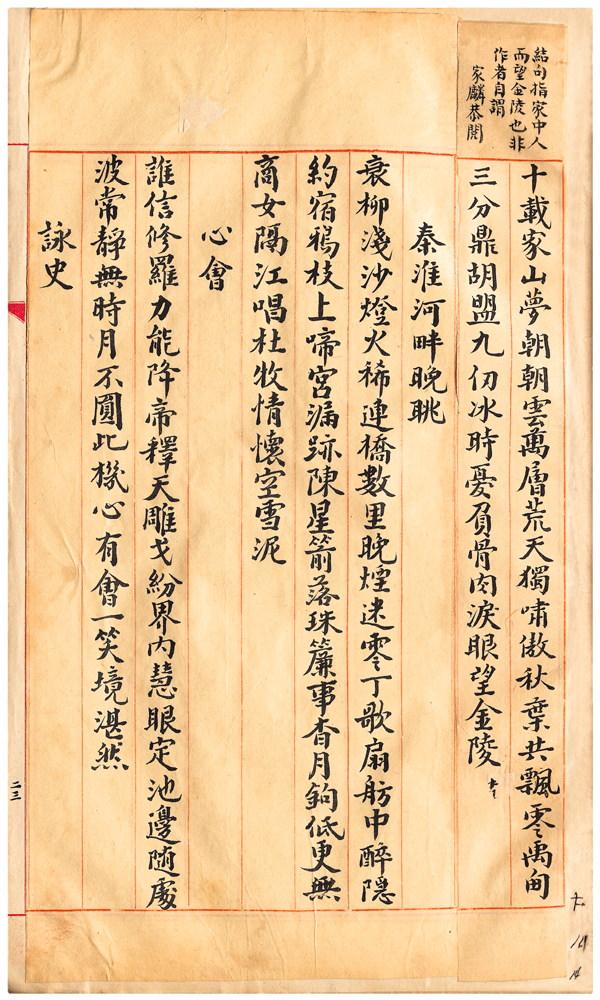 結句指家中人
而望金陵也非
作者自謂
家麟恭閱
十載家山夢朝朝雲萬層荒天獨嘯傲秋葉共飄零禹甸
三分鼎胡盟九仞冰時憂負骨肉淚眼望金陵
秦淮河畔晚眺
衰柳淺沙燈火稀連橋數里晚煙迷零丁歌扇舫中醉隱
約宿鴉枝上啼宮漏跡陳星箭落珠簾事杳月鉤低更無
商女隔江唱杜牧情懷空雪泥
心會
誰信修羅力能降帝釋天雕戈紛界內慧眼定池邊隨處
波常靜無時月不圓此機心有會一笑境湛然
詠史
二三